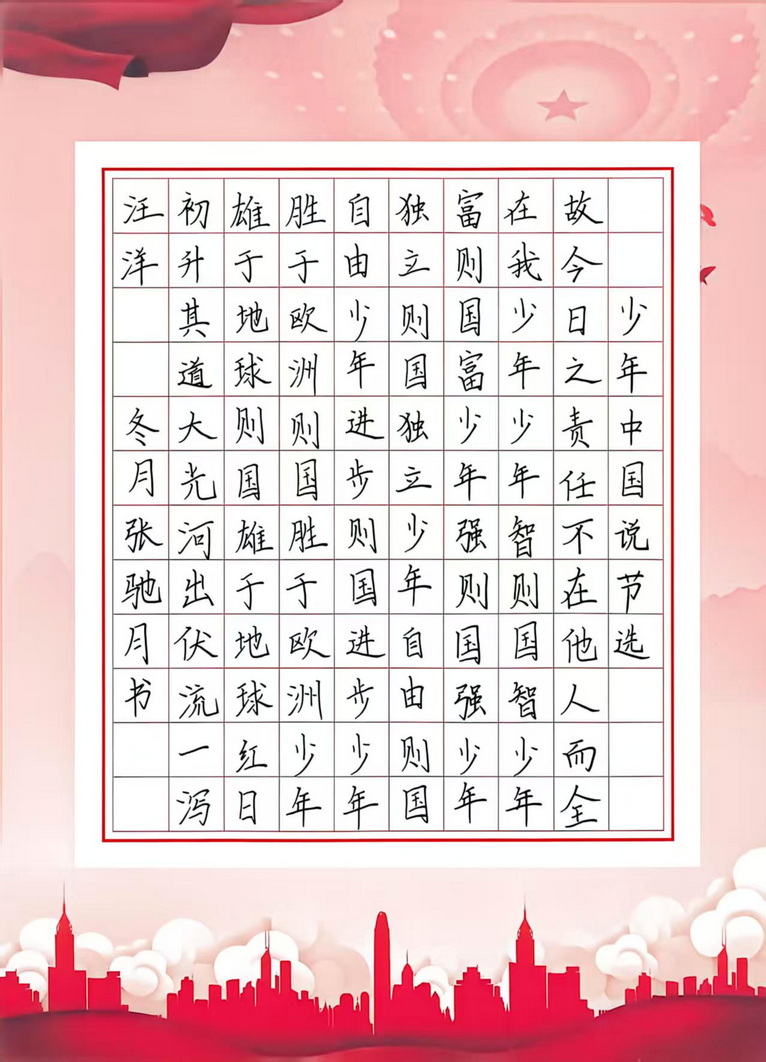 少年中国说节选
故今日之责任不在他人而全
在我少年少年智则国智少年
富则国富少年强则国强少年
独立则国独立少年自由则国
自由少年进步则国进步少年
胜于欧洲则国胜于欧洲少年
雄于地球则国雄于地球红日
初升其道大光河出伏流一泻
汪洋 冬月张驰月书